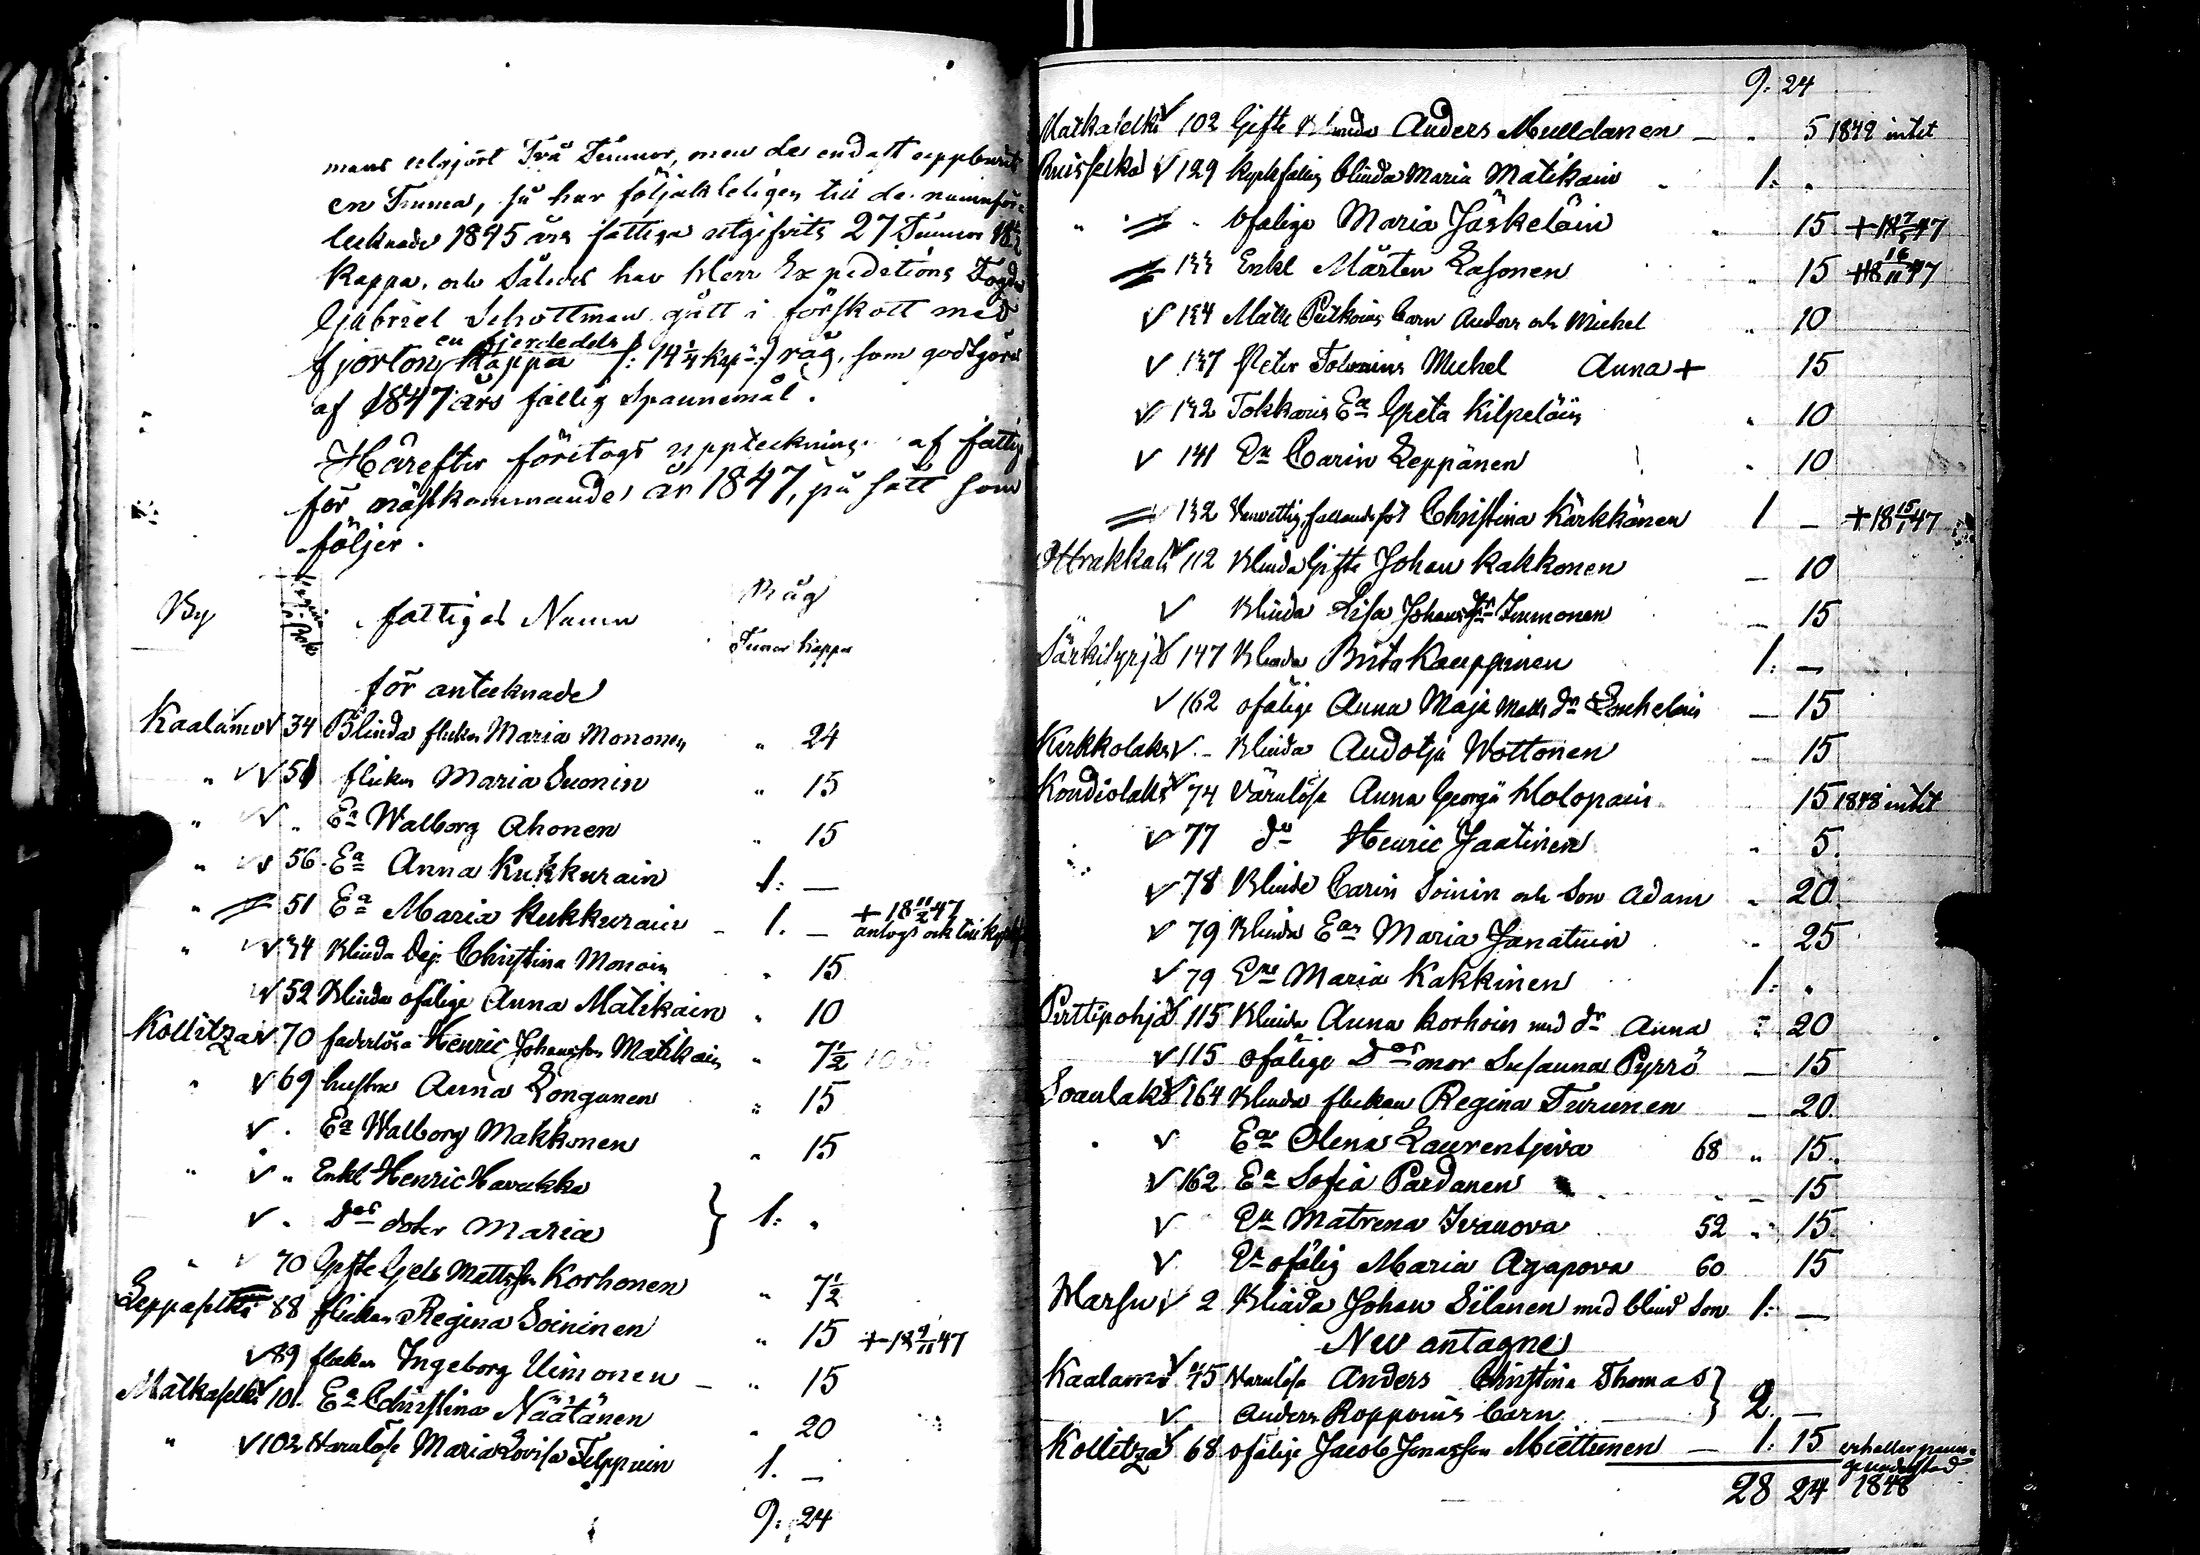 mans utgjort Två Tunnor, men de endast uppburit
en Tunna, så har följakteligen till de namnför-
tecknade 1845 års fattiga utgifvits 27 Tunnor
Kappa, och således har Herr Expeditions Fogde
Gabriel Schottman gått i förskott med
en fjerdedels
fjorton Kappa /: 14 1/4 kap :/ råg, som godtgöres
af 1847 års fattig Spannemål.
Härefter företogs uppteckning af fattig
för nästkommande år 1847, på sätt som
följer.
By fattiges Namn Råg
Tunnor kappa
för antecknade
Kaalamo 34 Blinda flickan Maria Mononen " 24
" 51 flickan Maria Suonin " 15
" " Ea Walborg Ahonen " 15
" 56 Ea Anna Kukkurain 1: —
" 51 Ea Maria Kukkurain - 1. — + 18 11/2 47
antogs
" 34 Blinda Pig. Christina Monoin " 15
52 Blinda ofälige Anna Matikain " 10
Kollitza 70 faderlösa Henric Johansson Matikain " 7 1/2
" 69 hustru Anna Longanen " 15
" Ea Walborg Makkonen " 15
" " Enkl Henric Havukka
" Das doter Maria } 1: "
" 70 Gifte Gels Mattsson Korhonen " 7 1/2
Leppäselkä 88 flickan Regina Soininen " 15 + 18 9/11 47
89 flickan Ingeborg Uimonen — " 15
Matkaselkä 101. Ea Christina Näätänen " 20
" 102 Warnlösa Maria Lovisa Filppuin 1. —
9: 24
9: 24
Matkaselkä 102 Gifte Blinda Anders Mulldanen — " 5 1848 intet
Ruisselkä 129 Rysksfallig blinda Maria Matikain " 1: "
" " Ofälige Maria Jäskeläin " 15 + 18 7/5 47
133 Enkl Mårten Lasonen " 15 + 18 16/11 47
134 Matts Pitkoins barn Anders och Michel " 10
137 Peter Tolvains Michel Anna + 15
132 Tokkarins Ea Greta Kilpeläin " 10
141 Dn Carin Leppänen " 10
132 Vanvettig, fallandesot Christina Kärkkänen 1 — + 18 15/1 47
Hrakkala 112 Blinda Gifte Johan Kakkonen — 10
Blinda Lisa Johans Dr Immonen — 15
Särkisyrjä 147 Blinda Brita Kauppinen 1: —
162 ofälige Anna Maja Matts dr — 15
Kirkkolaks - Blinda Audotja Wottonen — 15
Kondiolaks 74 Värnlösa Anna Georgii Holopain 15 1848 intet
77 do Henric Jaatinen " 5.
78 Blinde Carin Soinin och Son Adam " 20
79 Blinda Ean Maria Janatuin " 25
79 Dns Maria Kakkinen 1: "
Pirttipohja 115 Blinda Anna Korhoin med dr Anna " 20
115 ofälige Das mor Susanna Pyrrö — 15
Soanlaks 164 Blinda flickan Regina Turunen — 20
" Ean Olena Laurentjeva 68 " 15
162 Ea Sofia Pardanen - — 15
Dn Matrena Ivanova 52 " 15
Dn ofälig Maria Agapova 60 15
Harsu 2 Blinda Johan Silanen med blind Son 1: —
Nu antagne
Kaalamo 45 Warnlösa Anders Christina Thomas
Anders Roppoins barn } 2. —
Kollitza 68 ofälige Jacob Jonasson Miettunen — 1: 15 erhåller
28 24 1848